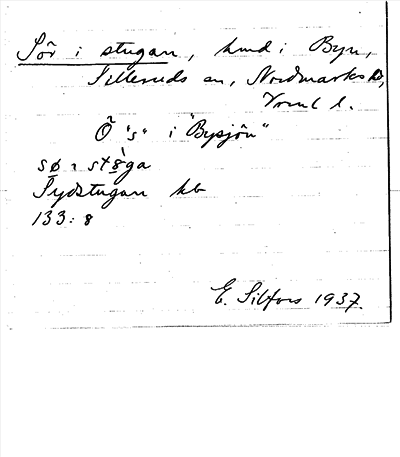 Sör i stugan, hmd i Byn,
Tilleruds sn, Nordmarks hd,
Vrml l.
Ö "s" i "Bysjön"
sø ı stɞ̀ga
Sydstugan kb
133:8
E. Silfors 1937.